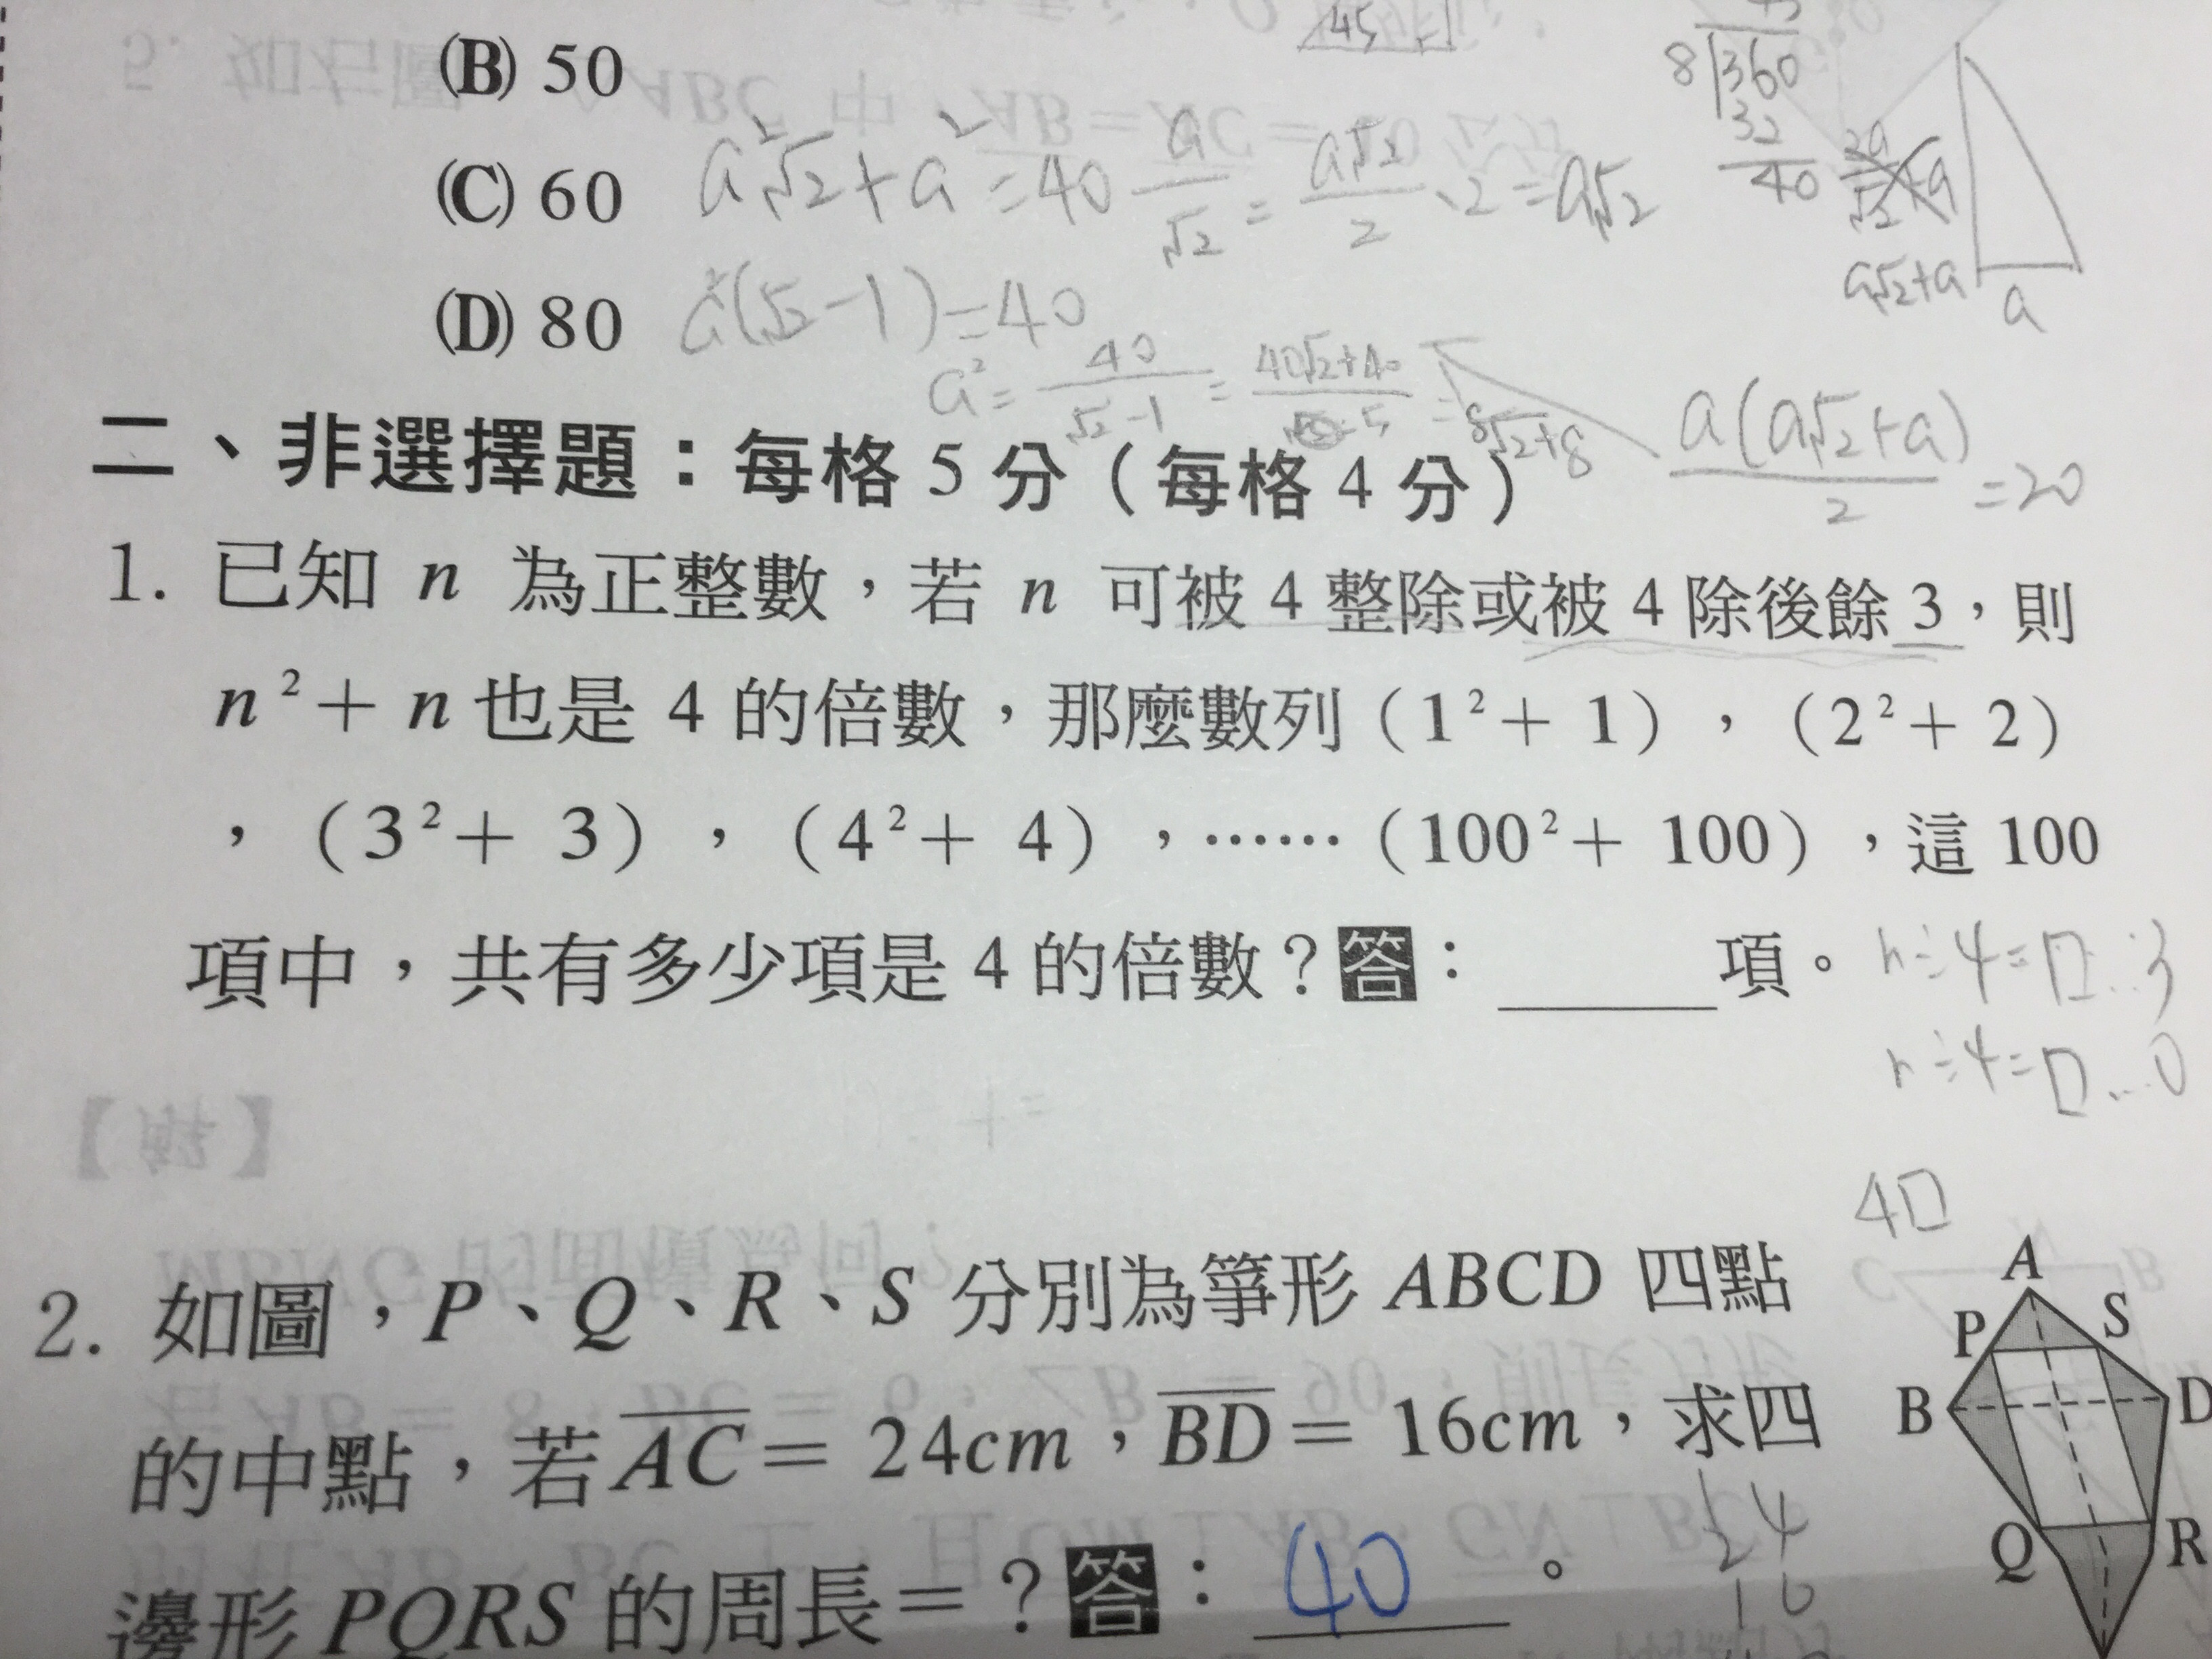 (B) 50
(C) 60
a²√2+a²=40
a/√2 = a√2/2 · 2 = a√2
8 360
32
40
a√2+a
a
(D) 80
a²(√2-1)=40
a² = 40/√2-1 = 40√2+40
= 8√2+8
a(a√2+a)/2 = 20
二、非選擇題：每格 5 分（每格 4 分）
1. 已知 n 為正整數，若 n 可被 4 整除或被 4 除後餘 3，則
n²+ n 也是 4 的倍數，那麼數列（1²+ 1），（2²+ 2）
，（3²+ 3），（4²+ 4），……（100²+ 100），這 100
項中，共有多少項是 4 的倍數？答：______項。
n÷4=□…3
n÷4=□…0
4□
2. 如圖，P、Q、R、S 分別為箏形 ABCD 四點
的中點，若 AC = 24cm，BD = 16cm，求四
邊形 PQRS 的周長=？答： 40 。
24
16
A
P
S
B
D
Q
R